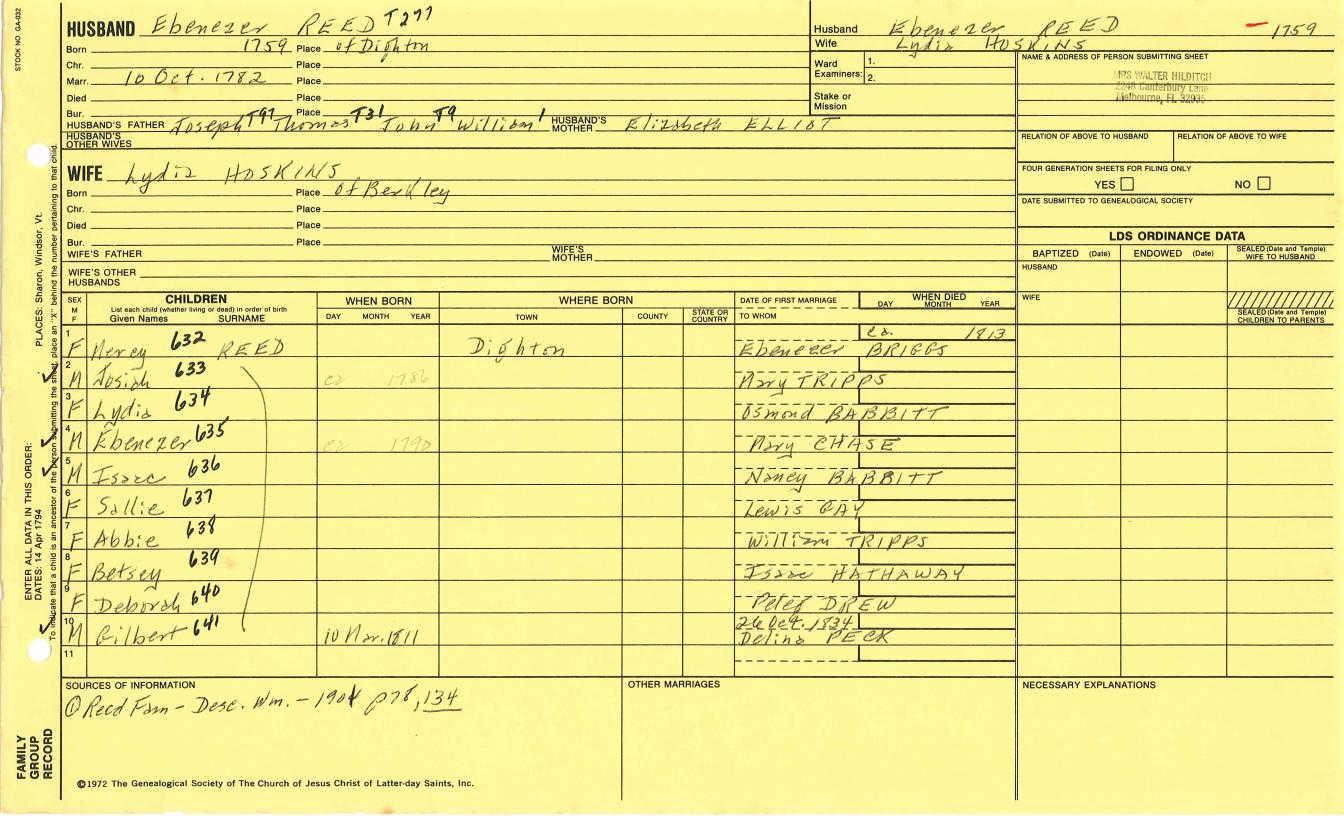 STOCK NO. GA-032
HUSBAND Ebenezer REED T277
Born 1759 Place of Dighton
Chr. Place
Marr. 10 Oct. 1782 Place
Died Place
Bur. Place
HUSBAND'S FATHER Joseph T97 Thomas T31 John T9 William 1 HUSBAND'S MOTHER Elizabeth ELLIOT
HUSBAND'S OTHER WIVES
WIFE Lydia HOSKINS
Born Place of Berkley
Chr. Place
Died Place
Bur. Place
WIFE'S FATHER WIFE'S MOTHER
WIFE'S OTHER HUSBANDS
Husband Ebenezer REED – 1759
Wife Lydia HOSKINS
Ward Examiners: 1.
2.
Stake or Mission
NAME & ADDRESS OF PERSON SUBMITTING SHEET
MRS WALTER HILDITCH
2248 Canterbury Lane
Melbourne, FL 32935
RELATION OF ABOVE TO HUSBAND RELATION OF ABOVE TO WIFE
FOUR GENERATION SHEETS FOR FILING ONLY
YES NO
DATE SUBMITTED TO GENEALOGICAL SOCIETY
LDS ORDINANCE DATA
BAPTIZED (Date) ENDOWED (Date) SEALED (Date and Temple) WIFE TO HUSBAND
HUSBAND
WIFE
SEALED (Date and Temple) CHILDREN TO PARENTS
SEX M F CHILDREN List each child (whether living or dead) in order of birth Given Names SURNAME WHEN BORN DAY MONTH YEAR WHERE BORN TOWN COUNTY STATE OR COUNTRY DATE OF FIRST MARRIAGE TO WHOM WHEN DIED DAY MONTH YEAR
1 F Mercy 632 REED Dighton Ebenezer BRIGGS ca. 1813
2 M Josiah 633 ca 1786 Mary TRIPPS
3 F Lydia 634 Osmond BABBITT
4 M Ebenezer 635 ca 1790 Mary CHASE
5 M Isaac 636 Nancy BABBITT
6 F Sallie 637 Lewis GAY
7 F Abbie 638 William TRIPPS
8 F Betsey 639 Isaac HATHAWAY
9 F Deborah 640 Peter DREW
10 M Gilbert 641 10 Mar. 1811 26 Oct. 1834 Delina PECK
11
SOURCES OF INFORMATION
① Reed Fam - Desc. Wm. - 1901 p78, 134
OTHER MARRIAGES
NECESSARY EXPLANATIONS
©1972 The Genealogical Society of The Church of Jesus Christ of Latter-day Saints, Inc.
ENTER ALL DATA IN THIS ORDER:
DATES: 14 Apr 1794 PLACES: Sharon, Windsor, Vt.
To indicate that a child is an ancestor of the person submitting the sheet, place an "X" behind the number pertaining to that child.
FAMILY GROUP RECORD